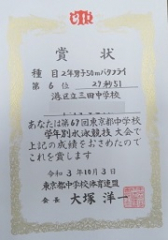 賞状
種目 2年男子50mバタフライ
第6位 27秒51
港区立三田中学校
あなたは第67回東京都中学校
学年別水泳競技大会で
上記の成績をおさめたので
これを賞します
令和3年10月3日
東京都中学校体育連盟
会長 大塚洋一